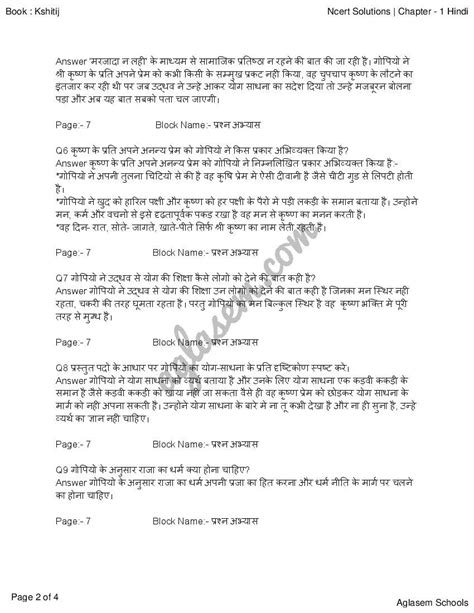 Book : Kshitij
Ncert Solutions | Chapter - 1 Hindi
Answer 'मरजादा न लही' के माध्यम से सामाजिक प्रतिष्ठा न रहने की बात की जा रही है। गोपियो ने
श्री कृष्ण के प्रति अपने प्रेम को कभी किसी के सम्मुख प्रकट नहीं किया, वह चुपचाप कृष्ण के लौटने का
इंतजार कर रही थी पर जब उद्धव ने उन्हे आकर योग साधना का संदेश दिया तो उन्हे मजबूरन बोलना
पडा और अब यह बात सबको पता चल जाएगी।
Page:- 7 Block Name:- प्रश्न अभ्यास
Q6 कृष्ण के प्रति अपने अनन्य प्रेम को गोपियो ने किस प्रकार अभिव्यक्त किया है?
Answer कृष्ण के प्रति अपने अनन्य प्रेम को गोपियो ने निम्नलिखित प्रकार अभिव्यक्त किया है:-
*गोपियो ने अपनी तुलना चिटियो से की है वह कृषि प्रेम मे ऐसी दीवानी है जैसे चीटी गुड से लिपटी होती
है।
*गोपियो ने खुद को हारिल पक्षी और कृष्ण को हर पक्षी के पैरो मे पड़ी लकडी के समान बताया है। उन्होने
मन, कर्म और वचनो से इसे दृढतापूर्वक पकड रखा है वह मन से कृष्ण का मनन करती है।
*वह दिन- रात, सोते- जागते, खाते-पीते सिर्फ श्री कृष्ण का नाम लेती रहती है।
Page:- 7 Block Name:- प्रश्न अभ्यास
Q7 गोपियो ने उद्धव से योग की शिक्षा कैसे लोगो को देने की बात कही है?
Answer गोपियो ने उद्धव से योग की शिक्षा उन लोगो को देने की बात कही है जिनका मन स्थिर नही
रहता, चकरी की तरह घूमता रहता है। परतु गोपियो का मन बिल्कुल स्थिर है वह कृष्ण भक्ति मे पूरी
तरह से मुग्ध है।
Page:- 7 Block Name:- प्रश्न अभ्यास
Q8 प्रस्तुत पदो के आधार पर गोपियो का योग-साधना के प्रति दृष्टिकोण स्पष्ट करे।
Answer गोपियो ने योग साधना को व्यर्थ बताया है और उनके लिए योग साधना एक कड़वी ककड़ी के
समान है जैसे कड़वी ककडी को खाया नही जा सकता वैसे ही वह कृष्ण प्रेम को छोडकर योग साधना के
मार्ग को नही अपना सकती है। उन्होने योग साधना के बारे मे ना तू कभी देखा है और ना ही सुना है, उन्हे
व्यर्थ का ज्ञान नही चाहिए।
Page:- 7 Block Name:- प्रश्न अभ्यास
Q9 गोपियो के अनुसार राजा का धर्म क्या होना चाहिए?
Answer गोपियो के अनुसार राजा का धर्म अपनी प्रजा का हित करना और धर्म नीति के मार्ग पर चलने
का होना चाहिए।
Page:- 7 Block Name:- प्रश्न अभ्यास
aglasem.com
Page 2 of 4
Aglasem Schools